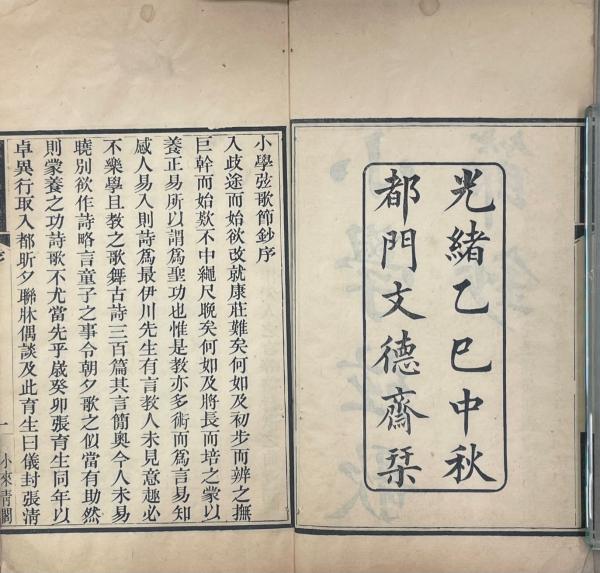 光緒乙巳中秋
都門文德齋栞
小學弦歌節鈔序
入歧途而始欲改就康莊難矣何如及初步而辨之撫
巨幹而始歎不中繩尺晚矣何如及將長而培之蒙以
養正易所以謂爲聖功也惟是教亦多術而爲言易知
感人易入則詩爲最伊川先生有言教人未見意趣必
不樂學且教之歌舞古詩三百篇其言簡奧今人未易
曉別欲作詩略言童子之事令朝夕歌之似當有助然
則蒙養之功詩歌不尤當先乎歲癸卯張育生同年以
卓異行取入都昕夕聯牀偶談及此育生曰儀封張淸
一
小來青閣